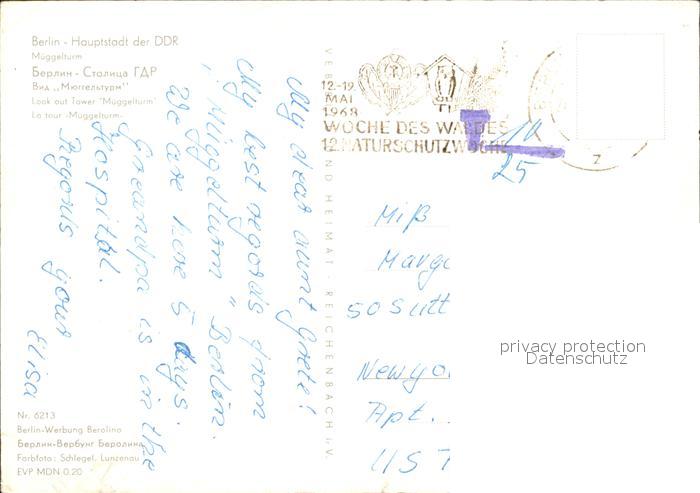 Berlin - Hauptstadt der DDR
Müggelturm
Берлин - Столица ГДР
Вид „Мюггельтурм"
Look out Tower "Müggelturm"
La tour -Müggelturm-
My dear aunt Grete!
My best regards from
„Müggelturm" Berlin.
We are here 5 days.
Greandpa is in the
Hospital.
Regards your
Elisa
Nr. 6213
Berlin-Werbung Berolina
Берлин-Вербунг Беролина
Farbfoto: Schlegel, Lunzenau
EVP MDN 0,20
ND HEIMAT · REICHENBACH i. V.
12.-19.
MAI
1968
WOCHE DES WALDES
12. NATURSCHUTZWOCHE
T
10
25
Miß
Marga
50 Sutt
Newyo
Apt.
UST
privacy protection
Datenschutz